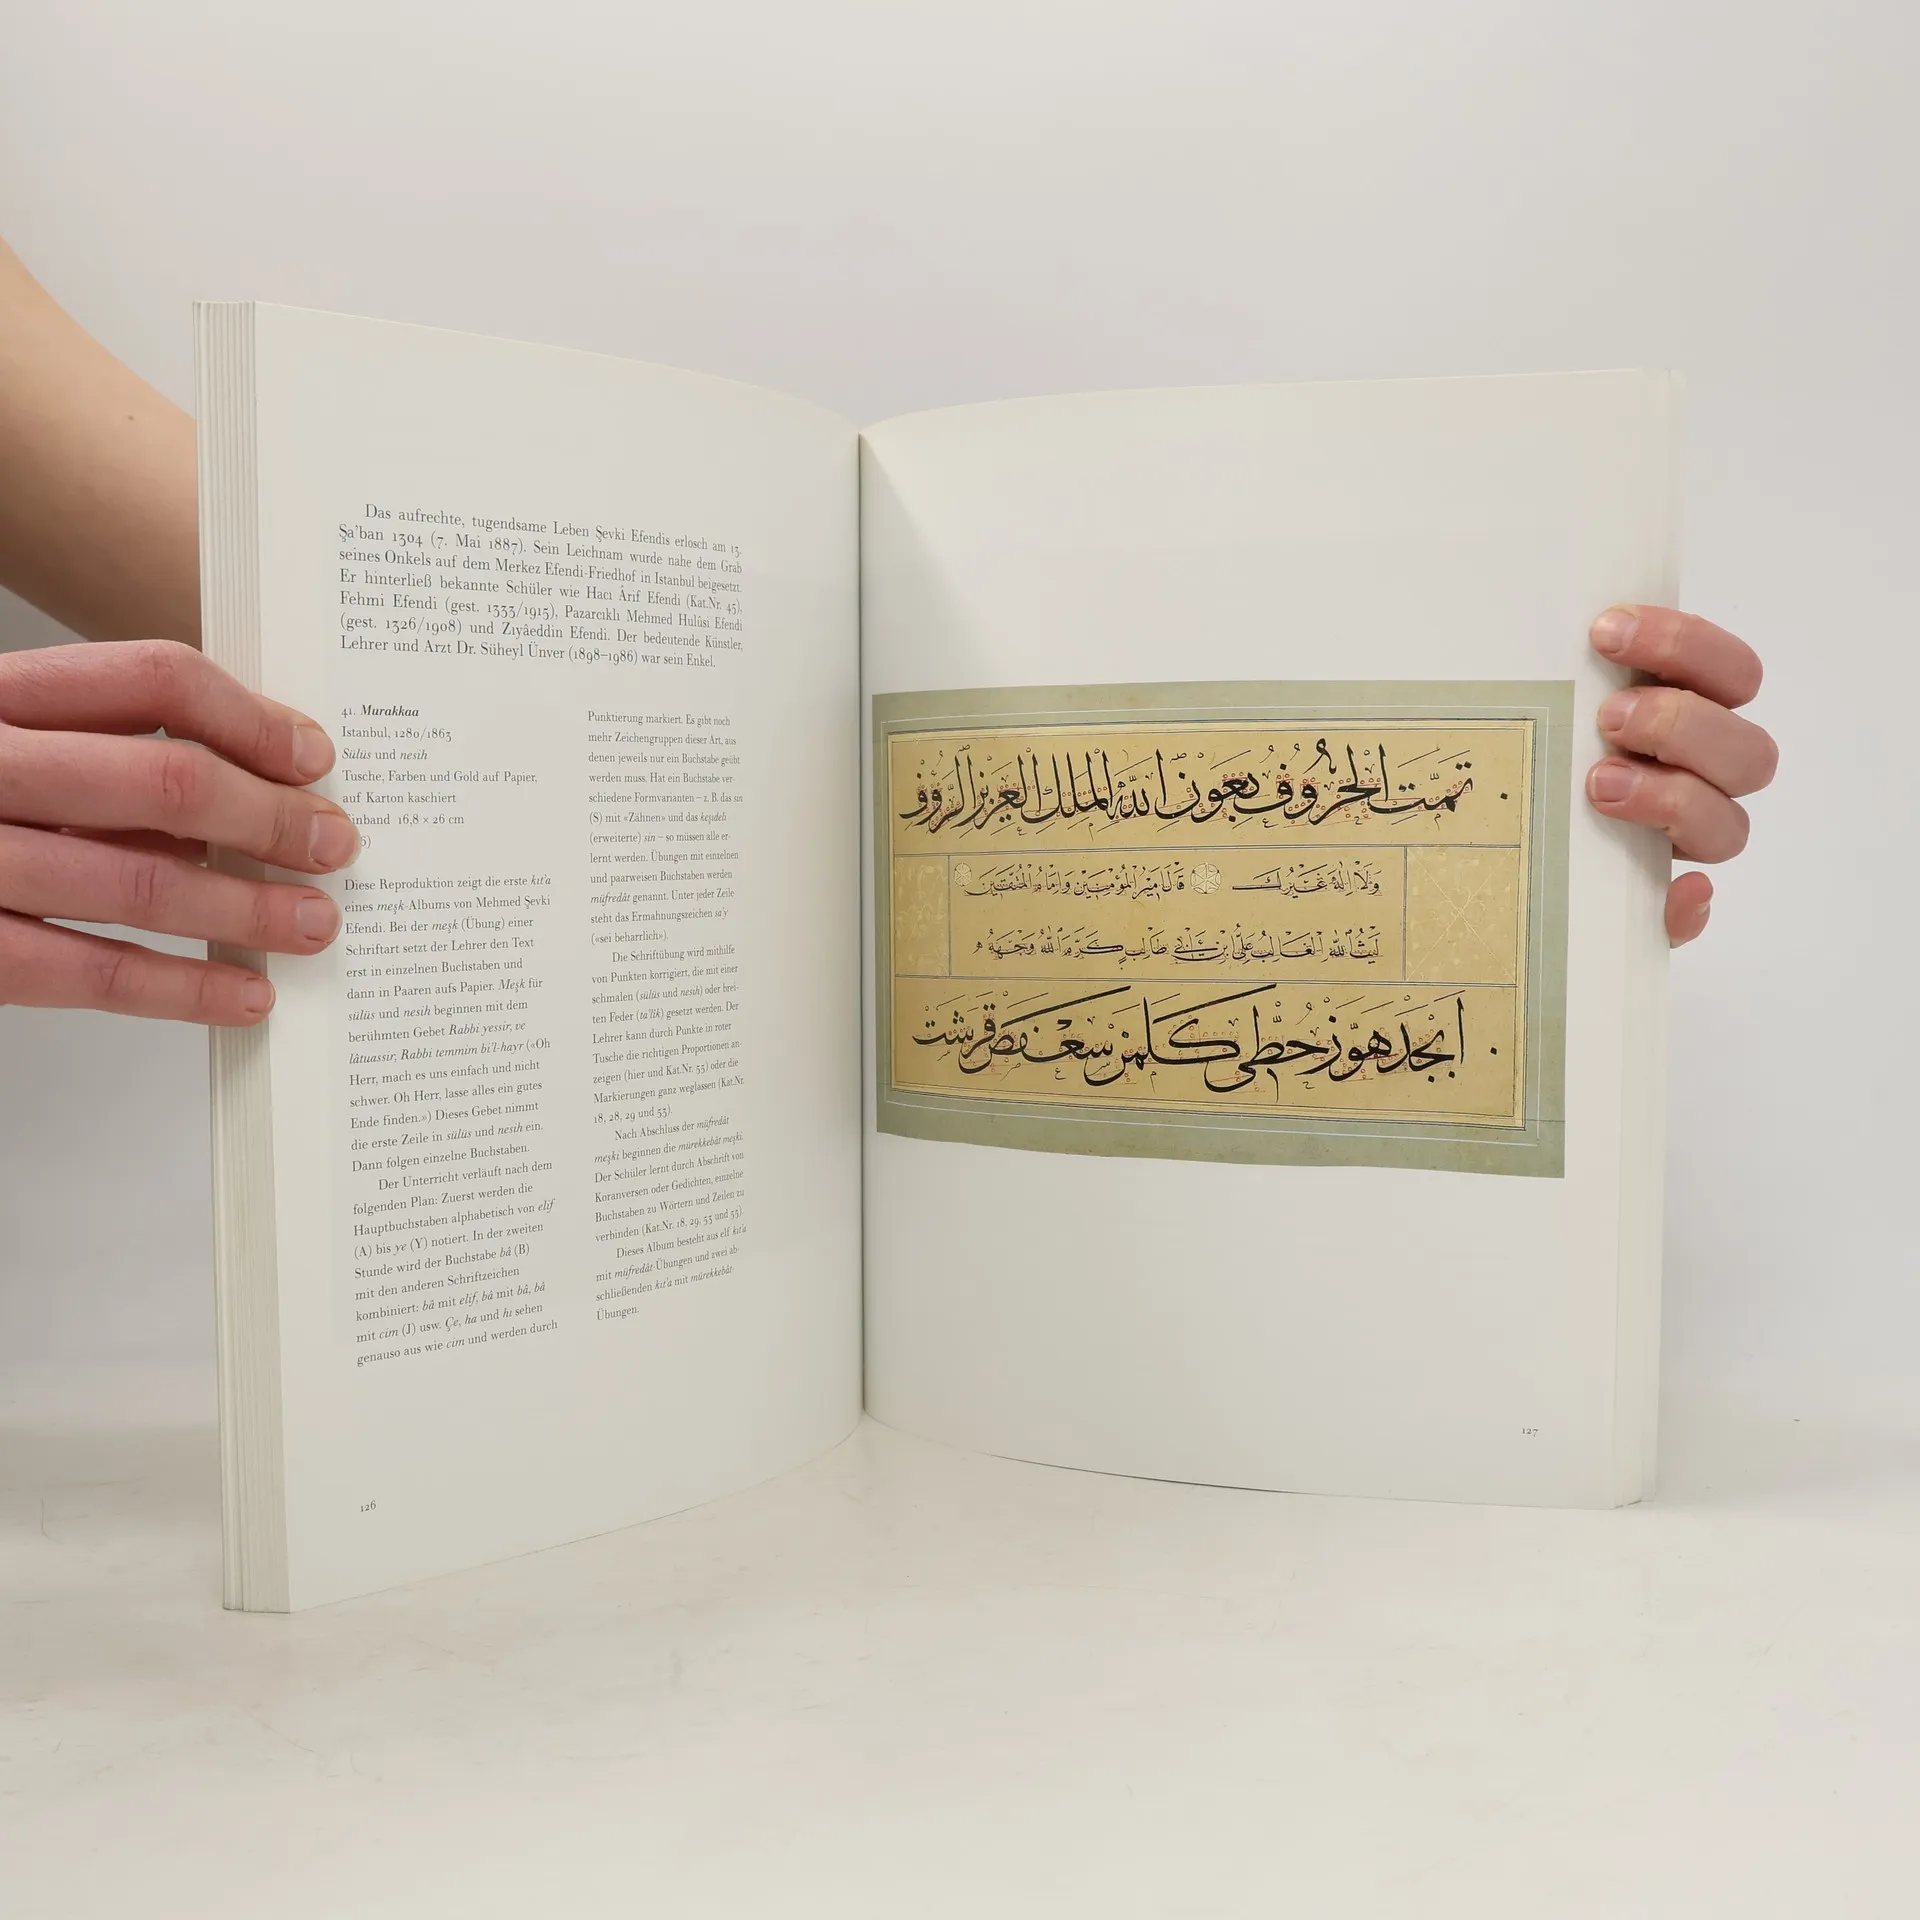 Das aufrechte, tugendsame Leben Şevki Efendis erlosch am 13.
Şa'ban 1304 (7. Mai 1887). Sein Leichnam wurde nahe dem Grab
seines Onkels auf dem Merkez Efendi-Friedhof in Istanbul beigesetzt.
Er hinterließ bekannte Schüler wie Hacı Ârif Efendi (Kat.Nr. 45),
Fehmi Efendi (gest. 1333/1915), Pazarcıklı Mehmed Hulûsi Efendi
(gest. 1326/1908) und Zıyâeddin Efendi. Der bedeutende Künstler,
Lehrer und Arzt Dr. Süheyl Ünver (1898–1986) war sein Enkel.
41. Murakkaa
Istanbul, 1280/1863
Sülüs und nesih
Tusche, Farben und Gold auf Papier,
auf Karton kaschiert
Einband 16,8 × 26 cm
Diese Reproduktion zeigt die erste kıt'a
eines meşk-Albums von Mehmed Şevki
Efendi. Bei der meşk (Übung) einer
Schriftart setzt der Lehrer den Text
erst in einzelnen Buchstaben und
dann in Paaren aufs Papier. Meşk für
sülüs und nesih beginnen mit dem
berühmten Gebet Rabbi yessir, ve
lâtuassir, Rabbi temmim bi'l-hayr («Oh
Herr, mach es uns einfach und nicht
schwer. Oh Herr, lasse alles ein gutes
Ende finden.») Dieses Gebet nimmt
die erste Zeile in sülüs und nesih ein.
Dann folgen einzelne Buchstaben.
Der Unterricht verläuft nach dem
folgenden Plan: Zuerst werden die
Hauptbuchstaben alphabetisch von elif
(A) bis ye (Y) notiert. In der zweiten
Stunde wird der Buchstabe bâ (B)
mit den anderen Schriftzeichen
kombiniert: bâ mit elif, bâ mit bâ, bâ
mit cim (J) usw. Çe, ha und hı sehen
genauso aus wie cim und werden durch
Punktierung markiert. Es gibt noch
mehr Zeichengruppen dieser Art, aus
denen jeweils nur ein Buchstabe geübt
werden muss. Hat ein Buchstabe ver-
schiedene Formvarianten – z. B. das sin
(S) mit «Zähnen» und das keşideli
(erweiterte) sin – so müssen alle er-
lernt werden. Übungen mit einzelnen
und paarweisen Buchstaben werden
müfredât genannt. Unter jeder Zeile
steht das Ermahnungszeichen sa'y
(«sei beharrlich»).
Die Schriftübung wird mithilfe
von Punkten korrigiert, die mit einer
schmalen (sülüs und nesih) oder brei-
ten Feder (ta'lik) gesetzt werden. Der
Lehrer kann durch Punkte in roter
Tusche die richtigen Proportionen an-
zeigen (hier und Kat.Nr. 55) oder die
Markierungen ganz weglassen (Kat.Nr.
18, 28, 29 und 53).
Nach Abschluss der müfredât
meşki beginnen die mürekkebât meşki.
Der Schüler lernt durch Abschrift von
Koranversen oder Gedichten, einzelne
Buchstaben zu Wörtern und Zeilen zu
verbinden (Kat.Nr. 18, 29, 53 und 55).
Dieses Album besteht aus elf kıt'a
mit müfredât-Übungen und zwei ab-
schließenden kıt'a mit mürekkebât-
Übungen.
126
تمت الحروف بعون الله الملك العزيز الرؤوف
ولا اله غيرك قال امير المؤمنين وامام المتقين
ليث الله الغالب علي ابن ابي طالب كرم الله وجهه
ابجد هوز حطي كلمن سعفص قرشت
127